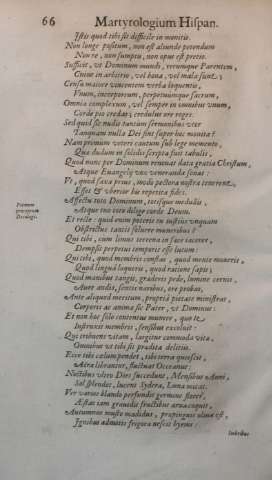 66 Martyrologium Hispan.
Istis quod tibi sit difficile in monitis.
Non longe positum, non est aliunde petendum
Non re, non sumptu, non opus est pretio.
Sufficit, ut Dominum mundi, rerumque Parentem,
Cuius in arbitrio, vel bona, vel mala sunt;
Censu maiore vincentem verba loquentis,
Unum, incorporeum, perpetuumque sacrum,
Omnia complexum, vel semper in omnibus unum,
Corde pio credas; credulus ore roges.
Sed quid sic nudis tantum sermonibus uter
Tanquam nulla Dei sint super hac monita?
Nam primum veteri cautum sub lege memento,
Qua dudum in solidis scripta fuit tabulis,
Quod nunc per Dominum renovat data gratia Christum,
Atque Euangelij vox veneranda sonat:
Ut, quod saxa prius, modo pectora nostra tenerent,
Esset & uberior bis repetita fides.
Affectu toto Dominum, totisque medullis,
Atque tuo toto dilige corde Deum.
Primum
præceptum
Decalogi.
Et recte: quid enim poteris tu iustius unquam
Obstrictus tantis solvere muneribus?
Qui tibi, cum limus terrena in face iaceret,
Dempsit perpetuo temporis esse lutum:
Qui tibi, quod membris constas, quod mente moveris,
Quod lingua loqueris, quod ratione sapis;
Quod manibus tangis, graderis pede, lumine cernis,
Aure audis, sentis naribus, ore probas,
Ante aliquod meritum, propria pietate ministrat
Corporis ac anima sic Pater, ut Dominus:
Et non hoc solo contentus munere, quo te
Instruxit membris, sensibus excoluit:
Qui tribuens vitam, largitur commoda vita,
Omnibus ut tibi sit pradita delitijs.
Ecce tibi calum pendet, tibi terra quiescit,
Aera librantur, fluctuat Oceanus:
Noctibus ultro Dies succedunt, Mensibus Anni,
Sol splendet, lucent Sydera, Luna micat.
Ver varios blando perfundit germine flores,
Æstas iam grauidis fructibus arua coquit,
Autumnus musto madidus, propinguis oliua est,
Ignibus admotis frigora nescit hyems:
Imbribus